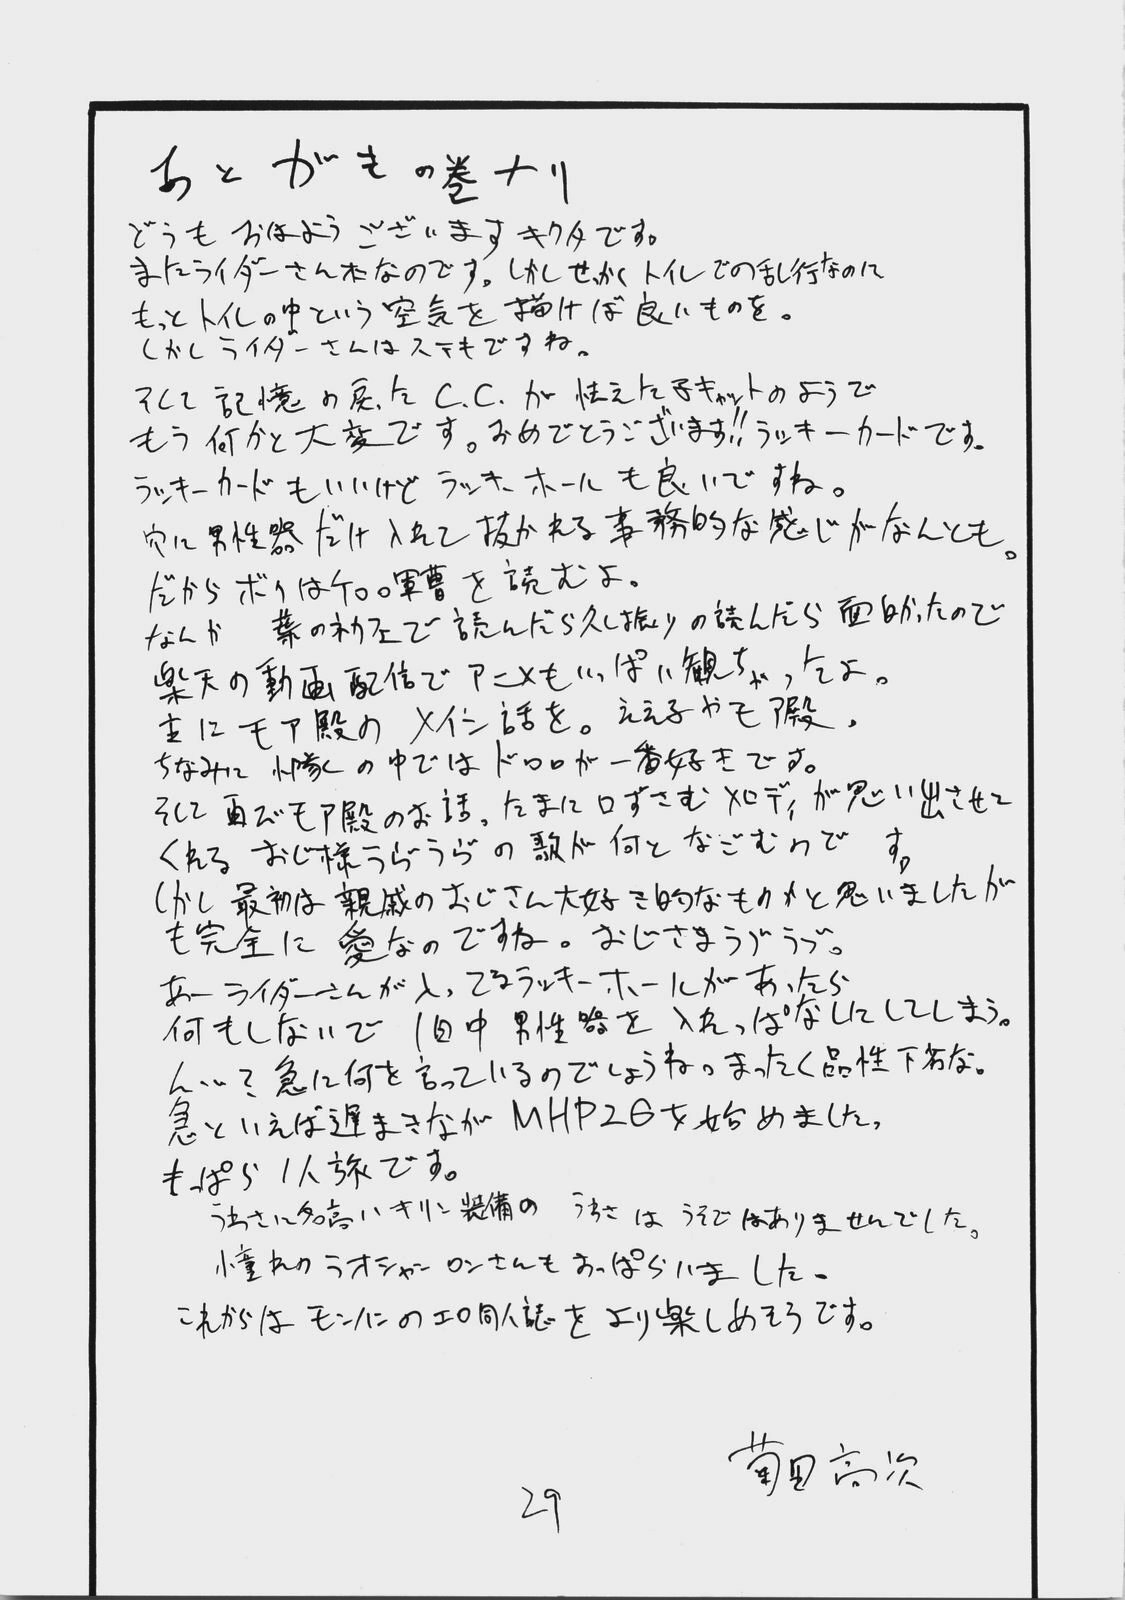 あとがきの巻ナリ
どうもおはようございますキクタです。
またライダーさん本なのです。しかしせっかくトイレでの乱行なのに
もっとトイレの中という空気を描けば良いものを。
しかしライダーさんはステキですね。
そして記憶の戻ったC.C.が怯えた子キャットのようで
もう何かと大変です。おめでとうございます!!ラッキーカードです。
ラッキーカードもいいけどラッキーホールも良いですね。
穴に男性器だけ入れて抜かれる事務的な感じがなんとも。
だからボクはケロロ軍曹を読むよ。
なんか 喫で読んだら久し振りの読んだら面白かったので
楽天の動画配信でアニメもいっぱい観ちゃったよ。
主にモア殿のメイン話を。ええ子やモア殿。
ちなみに小隊の中ではドロロが一番好きです。
そして再びモア殿のお話。たまに口ずさむメロディが思い出させて
くれるおじ様らぶらぶの歌が何となごむわです。
しかし最初は親戚のおじさん大好き的なものかと思いましたが
も完全に愛なのですね。おじさまらぶらぶ。
あーライダーさんが入ってるラッキーホールがあったら
何もしないで1日中男性器を入れっぱなしにしてしまう。
ん…?急に何を言っているのでしょうね。まったく品性下劣な。
急といえば遅まきながMHP2Gを始めました。
もっぱら1人旅です。
うわさに名高いキリン装備のうわさはうそではありませんでした。
憧れのラオシャンロンさんもおっぱらいました。
これからはモンハンのエロ同人誌をより楽しめそうです。
菊田高次
29